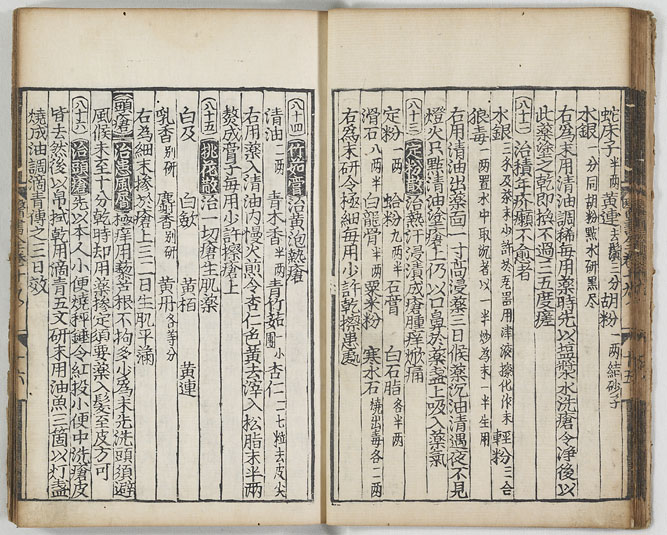 蛇床子半兩 黄連去鬚三分 胡粉一兩結砂子
水銀一分同胡粉點水研黑尽
右爲末用清油調稀每用藥時先以塩漿水洗瘡令淨後以
此藥塗之乾即換不過三五度瘥
八十二 治積年疥癩不愈者
水銀三分及茶末少許於瓷器用津液擦化作末 軽粉三合
狼毒一兩置水中取沉者以一半炒為末一半生用
右用清油出藥面一寸高浸藥三日候藥沉油清遇夜不見
燈火只點清油塗瘡上仍以口鼻於藥盞上吸入藥氣
八十三 定粉散 治熱汗浸漬成瘡腫痒焮痛
定粉一兩 蛤粉九兩半 石膏 白石脂各半兩
滑石八兩半 白龍骨半兩 粟米粉 寒水石燒出毒各二兩
右爲末研令極細每用少許乾擦患處
八十四 竹茹膏 治黄泡熱瘡
清油二兩 青木香半兩 青竹茹一小團 杏仁二七粒去皮尖
右用藥入清油内慢火煎令杏仁色黄去滓入松脂末半兩
熬成膏子每用少許擦瘡上
八十五 桃花散 治一切瘡生肌藥
白及 白斂 黄栢 黄連
乳香別研 麝香別研 黄丹各等分
右為細末摻於瘡上二三日生肌平滿
頭瘡 治惡風屑極痒用藜芦根不拘多少為末先洗頭須避
風候未至十分乾時却用藥摻定須要藥入髮至皮方可
八十六 治頭瘡先以本人小便燒秤錘令紅投小便中洗瘡皮
皆去然後以帛拭乾用滴青五文研末用油魚三箇以灯盞
燒成油調滴青傅之三日效